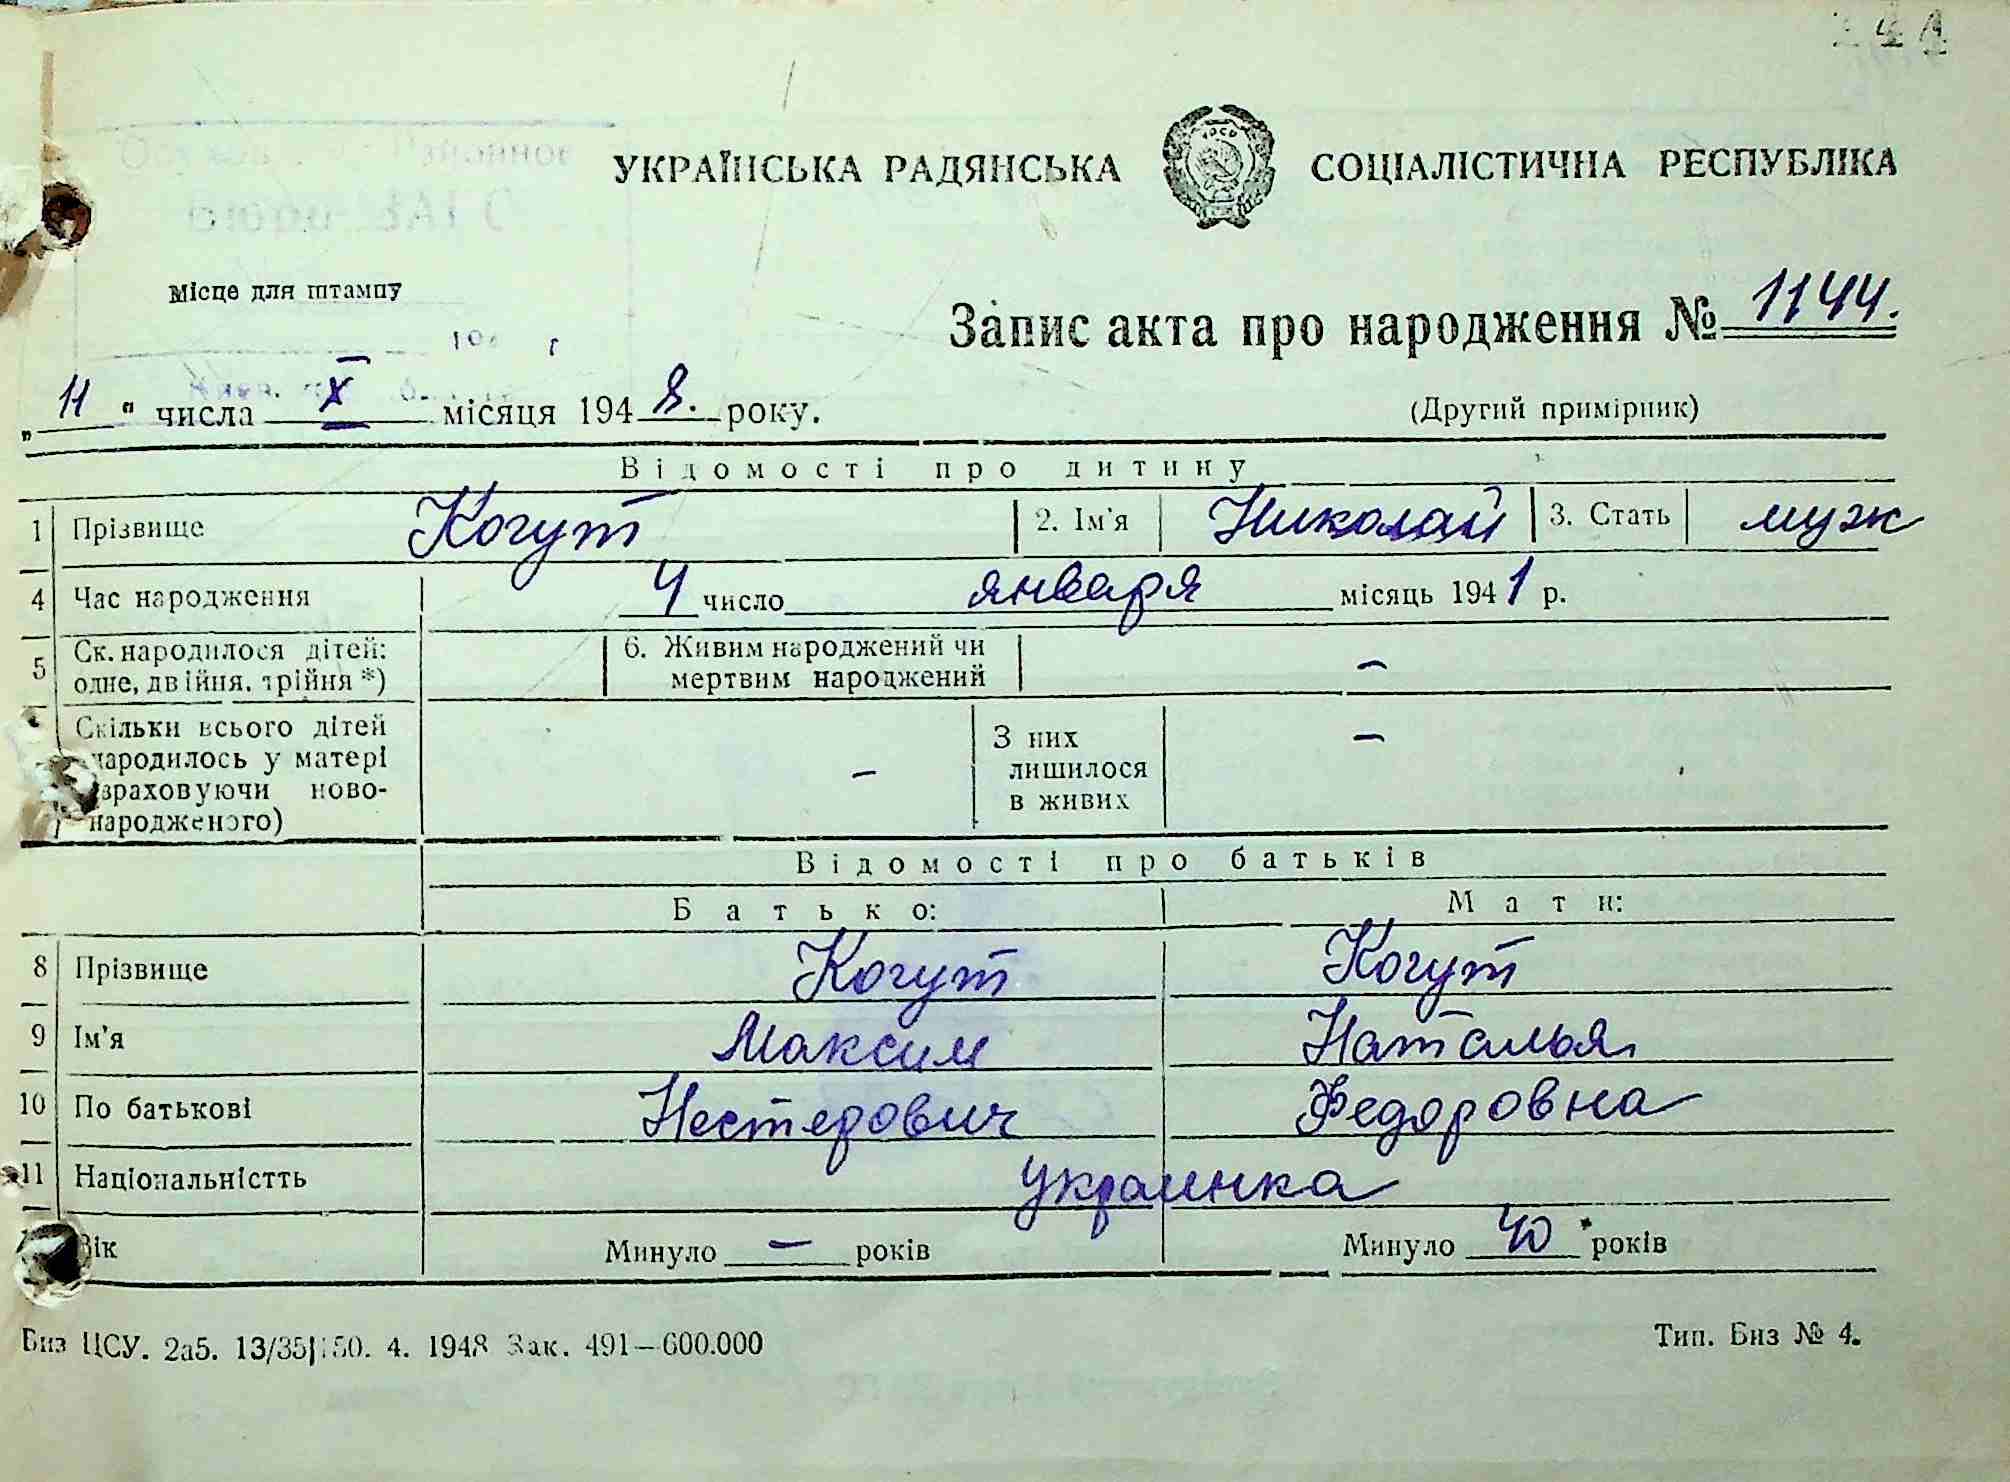 УКРАЇНСЬКА РАДЯНСЬКА СОЦІАЛІСТИЧНА РЕСПУБЛІКА
Місце для штампу
Запис акта про народження № 1144.
„ 11 " числа X місяця 1948. року.
(Другий примірник)
Відомості про дитину
1 Прізвище Когут 2. Ім'я Николай 3. Стать муж
4 Час народження 4 число января місяць 1941 р.
5 Ск. народилося дітей: одне, двійня, трійня *) 6. Живим народжений чи мертвим народжений –
Скільки всього дітей народилось у матері враховуючи ново-народженого) – З них лишилося в живих –
Відомості про батьків
Батько: Мати:
8 Прізвище Когут Когут
9 Ім'я Максим Наталья
10 По батькові Нестерович Федоровна
11 Національністть украинка
Вік Минуло – років Минуло 40 років
Биз ЦСУ. 2а5. 13/35 150. 4. 1948 Зак. 491—600.000
Тип. Биз № 4.